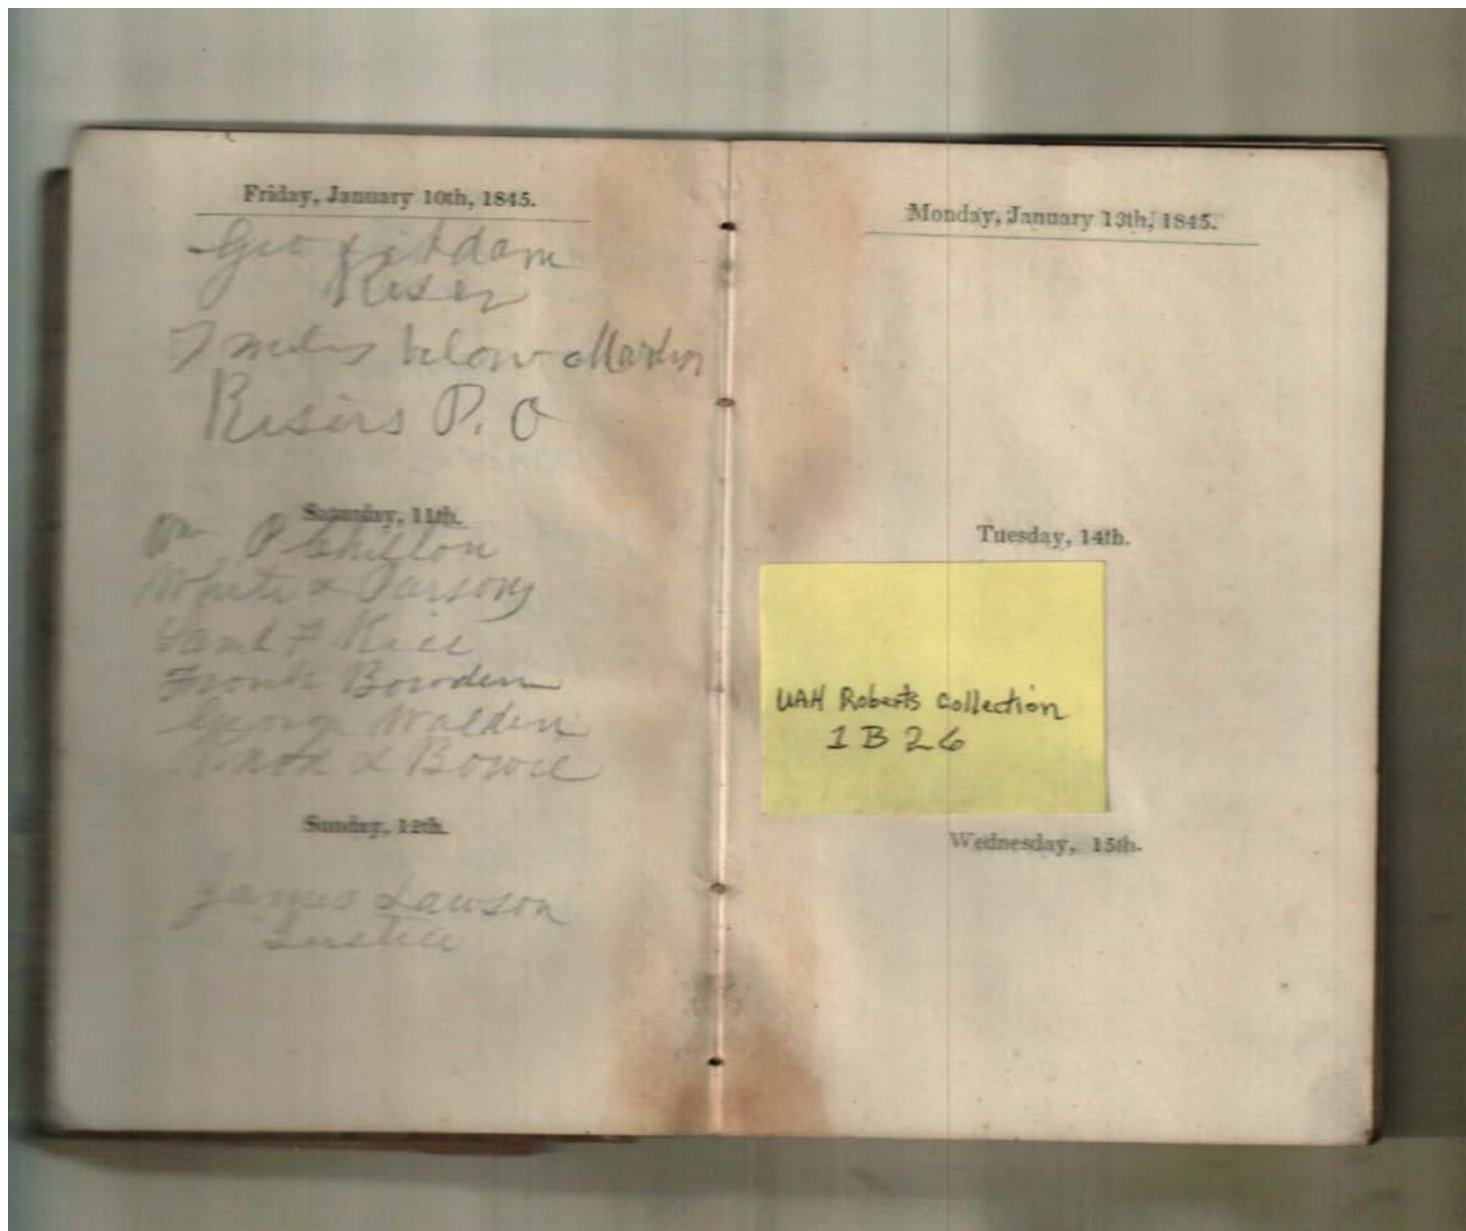 Friday, January 10th, 1845.
Geo & Adam
Riser
7 miles below Mardis
Risers P. O
Saturday, 11th.
Wm P Chilton
White & Parsons
Saml F Rice
Frank Bowden
George Walden
Knox & Bowie
Sunday, 12th.
James Lawson
Monday, January 13th, 1845.
Tuesday, 14th.
UAH Roberts Collection
1 B 26
Wednesday, 15th.